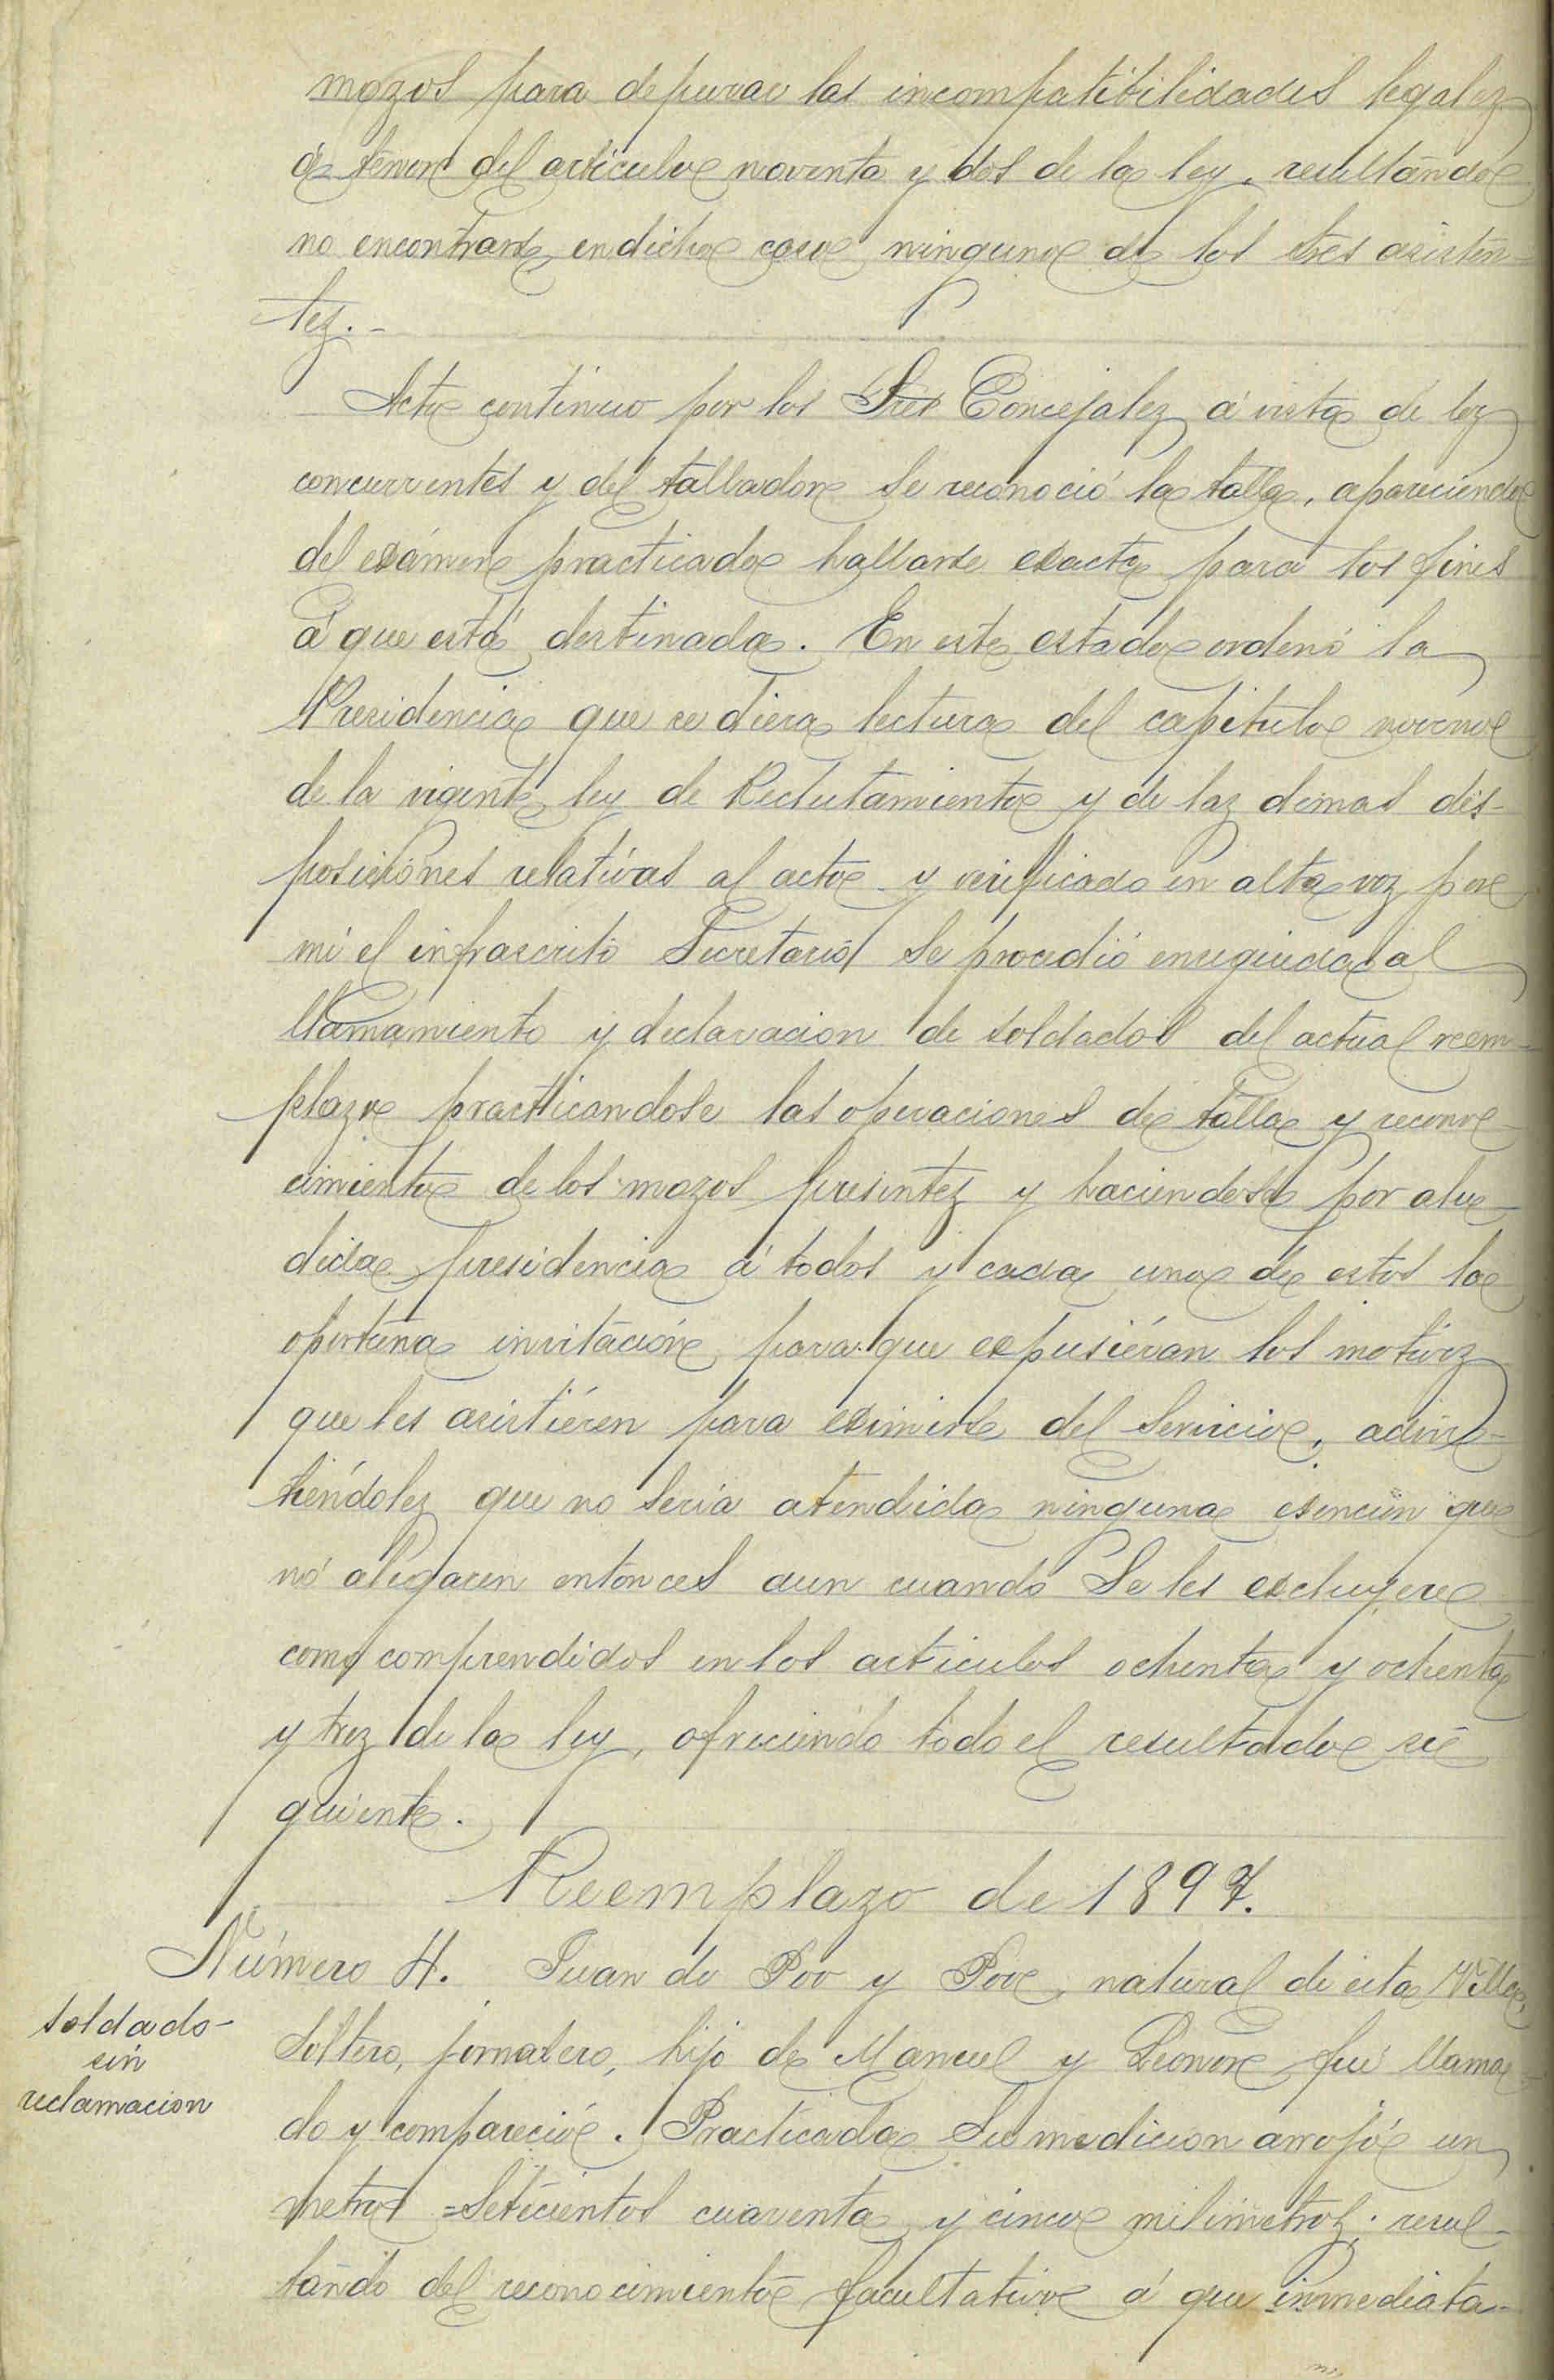 mozos para depurar las incompatibilidades legales
á tenor del articulo noventa y dos de la ley, resultando
no encontrarse en dicho caso ninguno de los tres asisten-
tes.-
Acto continuo por los Sres Concejales á vista de los
concurrentes y del tallador se reconoció la talla, apareciendo
del exámen practicado hallarse exacta para los fines
á que está destinada. En este estado ordenó la
Presidencia que se diera lectura del capitulo noveno
de la vigente ley de Reclutamiento y de las demas dis-
posiciones relativas al acto y verificado en alta voz por
mi el infrascrito Secretario se procedió enseguida al
llamamiento y declaracion de soldados del actual reem-
plazo practicandose las operaciones de talla y recono-
cimiento de los mozos presentes y haciendose por alu-
dida presidencia á todos y cada uno de estos la
oportuna invitación para que expusiéran los motivos
que les asistiéren para eximirse del servicio, advir-
tiéndoles que no seria atendida ninguna esencion que
nó alegaren entónces aun cuando se les excluyere
como comprendidos en los articulos ochenta y ochenta
y tres de la ley, ofreciendo todo el resultado si-
guiente.
Reemplazo de 1897.
Número 4. Juan de Poo y Poo, natural de esta Villa,
soldado-
sin
reclamacion
soltero, jornalero, hijo de Manuel y Leonor fué llama-
do y compareció. Practicada su medicion arrojó un
metro =setecientos cuarenta y cinco milimetros; resul-
tando del reconocimiento facultativo á que inmediata-